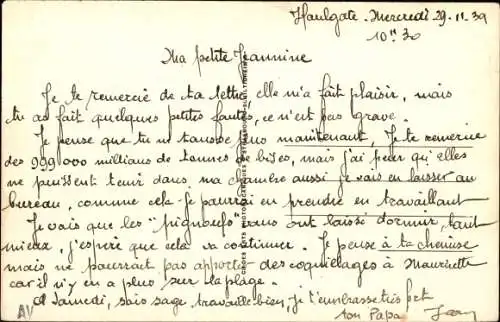 Houlgate - Mercredi 29-11-39
10h30
Ma petite Jeannine
Je te remercie de ta lettre, elle m'a fait plaisir, mais
tu as fait quelques petites fautes, ce n'est pas grave.
Je pense que tu ne tousse plus maintenant, Je te remercie
des 999 000 millions de tonnes de bises, mais j'ai peur qu'elles
ne puissent tenir dans ma chambre aussi je vais en laisser au
bureau, comme cela je pourrai en prendre en travaillant
Je vois que les "pignoufs" vous ont laissé dormir, tant
mieux, j'espère que cela va continuer. Je pense à ta chemise
mais ne pourrait pas apporter des coquillages à Mauricette
car il n'y en a plus sur la plage.
A Samedi, sois sage travaille bien, je t'embrasse très fort
ton Papa Jean